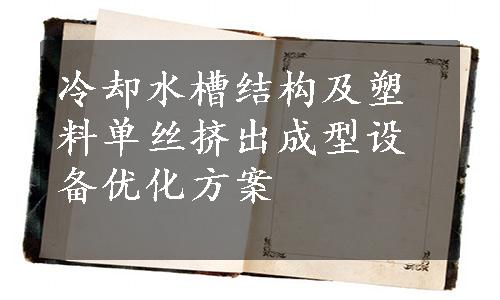 冷却水槽结构及塑
料单丝挤出成型设
备优化方案